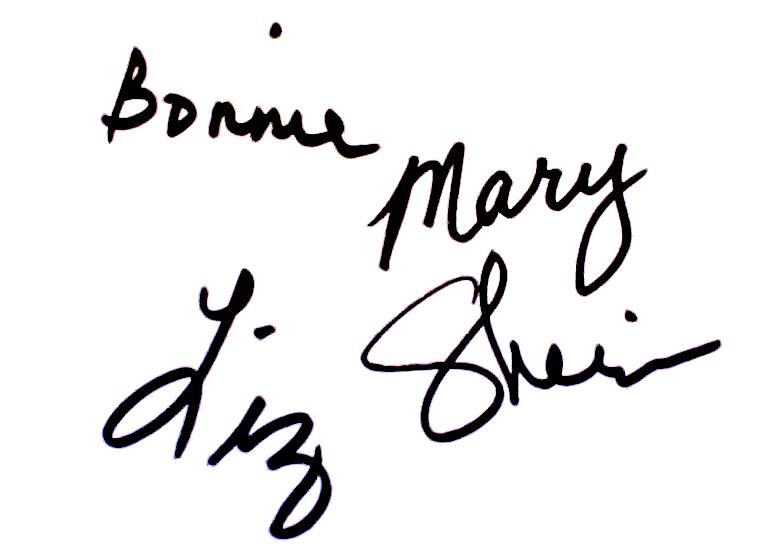 Bonnie
Mary
Liz
Shein